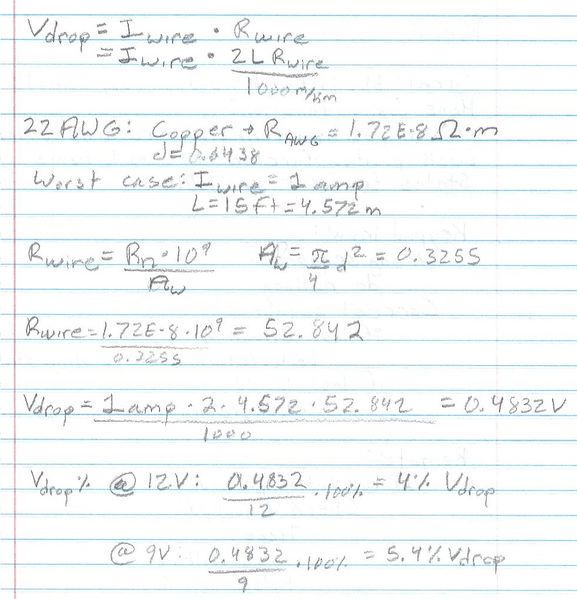 Vdrop = Iwire · Rwire
= Iwire · 2LRwire / 1000 m/km
22 AWG: Copper → RAWG = 1.72E-8 Ω·m
d = 0.6438
Worst case: Iwire = 1 amp
L = 15ft = 4.572 m
Rwire = Rn · 10⁹ / Aw   Aw = π/4 d² = 0.3255
Rwire = 1.72E-8 · 10⁹ / 0.3255 = 52.842
Vdrop = 1amp · 2 · 4.572 · 52.842 / 1000 = 0.4832V
Vdrop% @ 12V: 0.4832 / 12 · 100% = 4% Vdrop
@ 9V: 0.4832 / 9 · 100% = 5.4% Vdrop